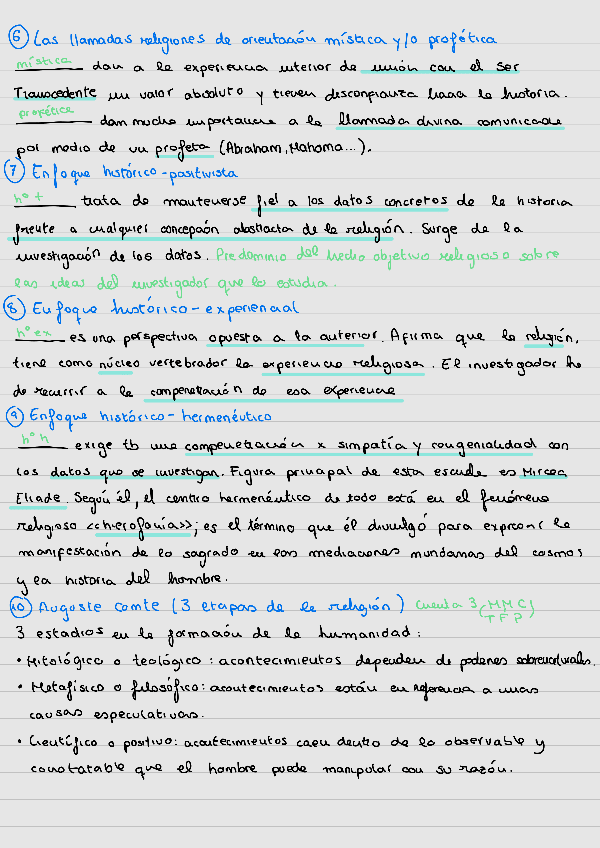 6 Las llamadas religiones de orientación mística y/o profética
mística dan a la experiencia interior de unión con el ser
Trascendente un valor absoluto y tienen desconfianza hacia la historia.
profética dan mucha importancia a la llamada divina comunicada
por medio de un profeta (Abraham, Mahoma...).
7 Enfoque histórico-positivista
hº + trata de mantenerse fiel a los datos concretos de la historia
frente a cualquier concepción abstracta de la religión. Surge de la
investigación de los datos. Predominio del hecho objetivo religioso sobre
las ideas del investigador que lo estudia.
8 Enfoque histórico-experiencial
hº ex es una perspectiva opuesta a la anterior. Afirma que la religión,
tiene como núcleo vertebrador la experiencia religiosa. El investigador ha
de recurrir a la compenetración de esa experiencia
9 Enfoque histórico-hermenéutico
hº h exige tb una compenetración x simpatía y congenialidad con
los datos que se investigan. Figura principal de esta escuela es Mircea
Eliade. Según él, el centro hermenéutico de todo está en el fenómeno
religioso <<hierofanía>>; es el término que él divulgó para expresar la
manifestación de lo sagrado en las mediaciones mundanas del cosmos
y la historia del hombre.
10 Auguste comte (3 etapas de la religión) Cuenta 3 (MMC)
TFP
3 estadios en la formación de la humanidad:
• Mitológico o teológico: acontecimientos dependen de poderes sobrenaturales.
• Metafísico o filosófico: acontecimientos están en referencia a unas
causas especulativas.
• Científico o positivo: acontecimientos caen dentro de lo observable y
constatable que el hombre puede manipular con su razón.